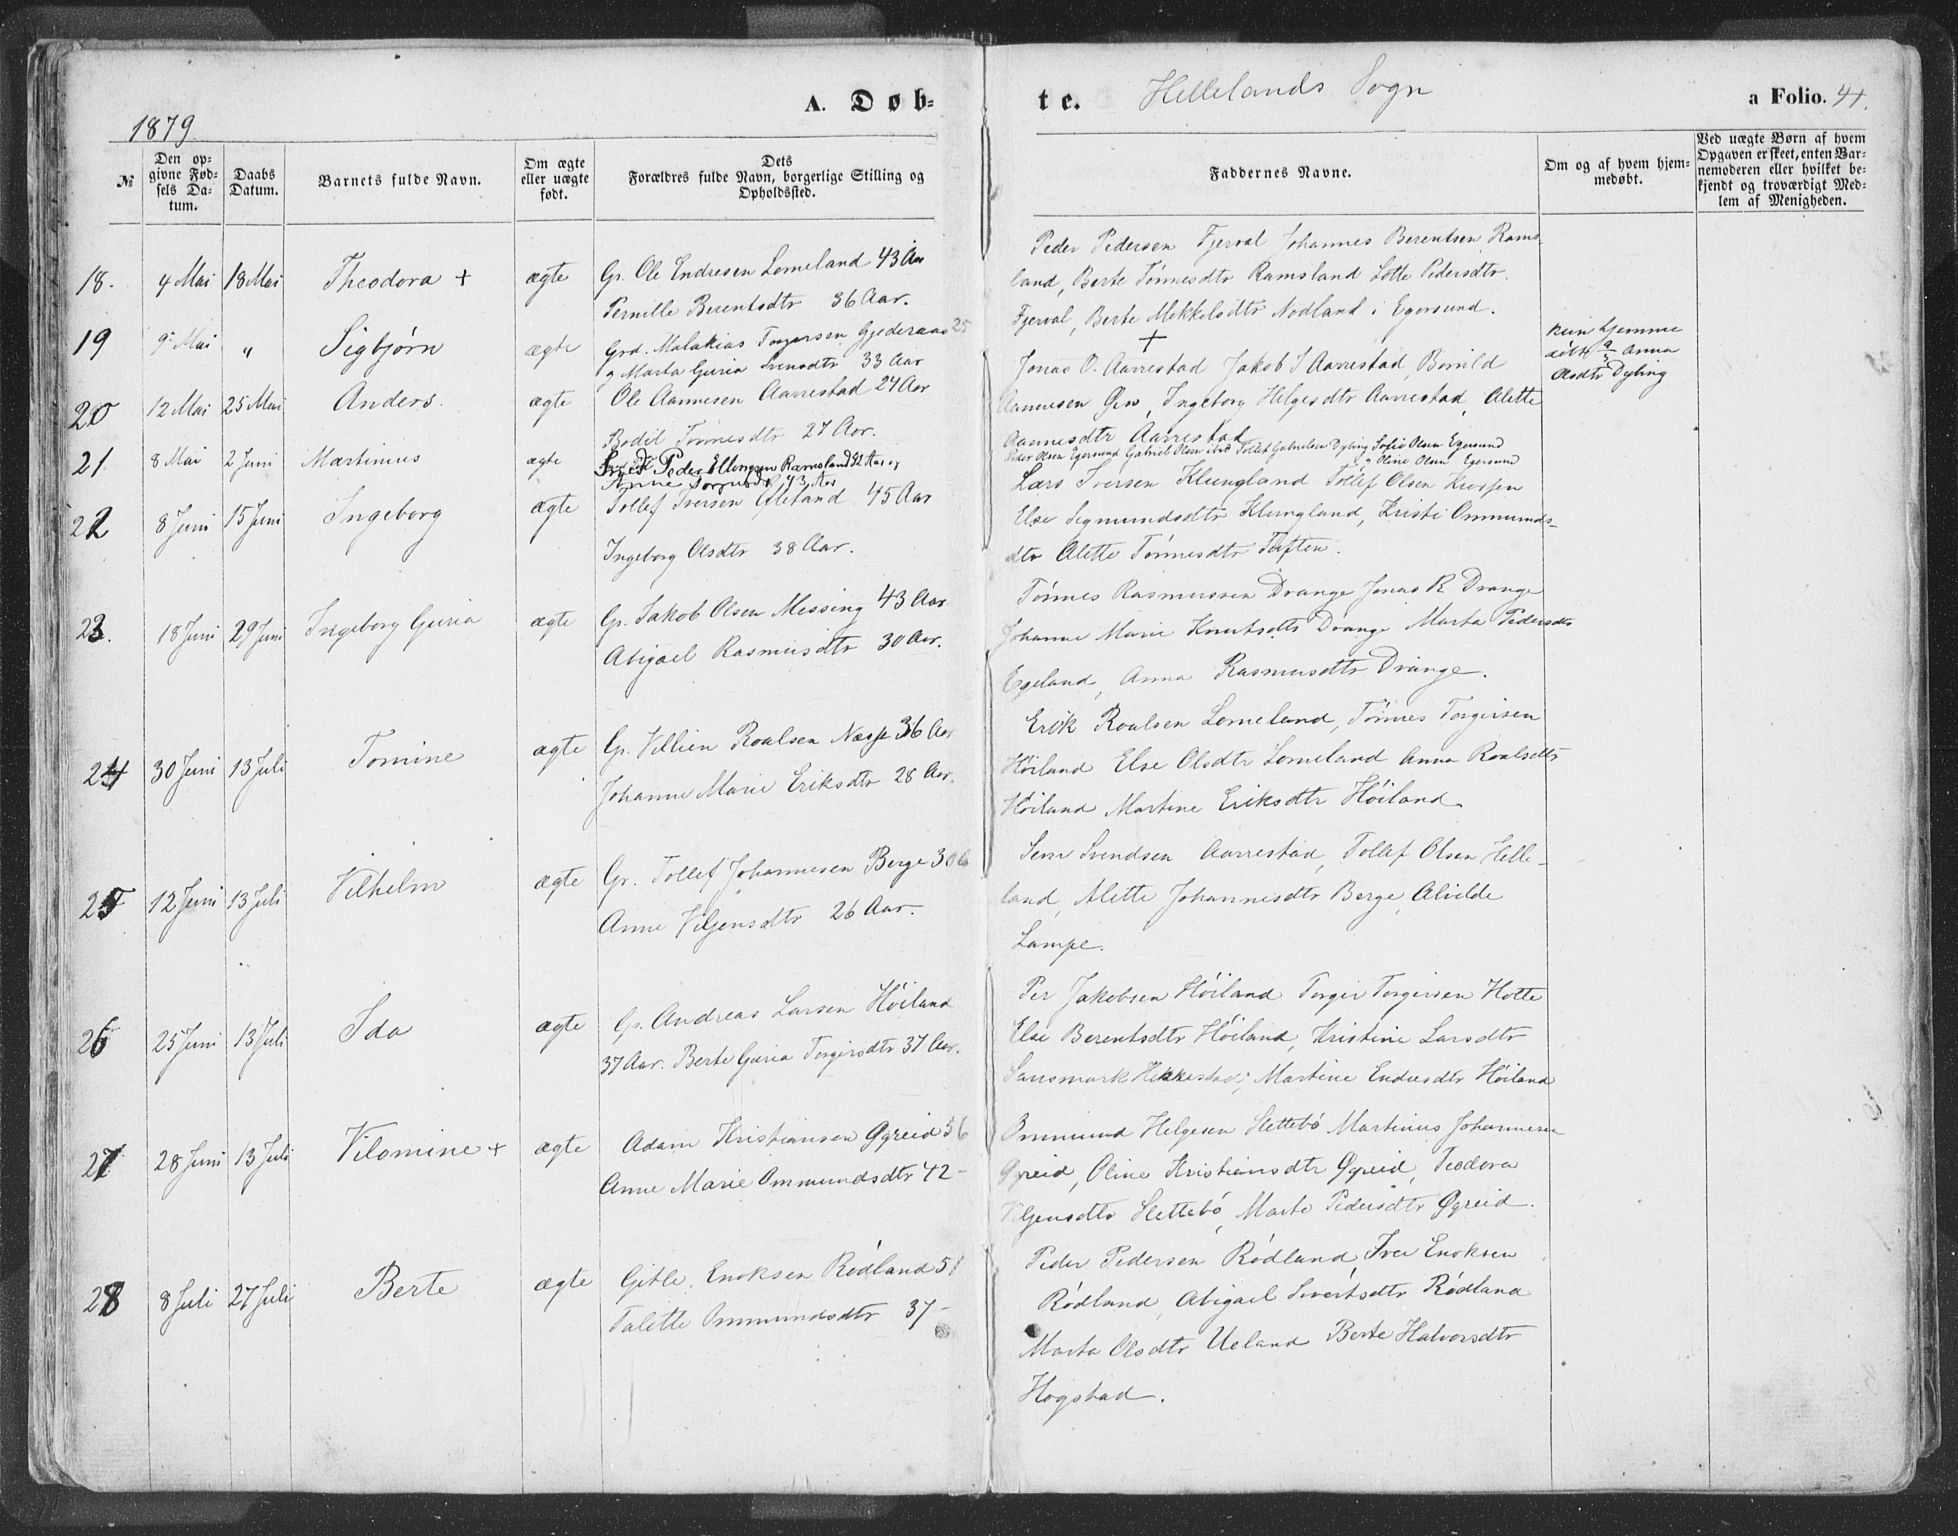 1879
A. Døb=
te.
Hellelands Sogn
a Folio. 41.
№
Den op=
givne Fød=
sels Da=
tum.
Daabs
Datum.
Barnets fulde Navn.
Om ægte
eller uægte
født.
Dets
Forældres fulde Navn, borgerlige Stilling og
Opholdssted.
Faddernes Navne.
Om og af hvem hjem=
medøbt.
Ved uægte Børn af hvem
Opgaven er skeet, enten Bar=
nemoderen eller hvilket be=
kjendt og troværdigt Med=
lem af Menigheden.
18. 4 Mai 18 Mai Theodora + ægte Gr. Ole Endresen Lomeland 43 Aar
Pernille Berentsdtr 36 Aar.
Peder Pedersen Fjerval Johannes Berentsen Rams-
land, Berte Tønnesdtr Ramsland Lotte Pedersdtr.
Fjerval, Berte Mikkelsdtr Nodland i Egersund.
19 9 Mai " Sigbjørn ægte Grd. Malakias Torgersen Gjederaas 25
og Marta Guria Svensdtr 33 Aar
+
kun hjemme
Anna
Olsdtr Dyling
20 12 Mai 25 Mai Anders. ægte Ole Aannesen Aarrestad 24 Aar
Bodil Tønnesdtr 27 Aar.
Jonas O. Aarrestad Jakob J Aarrestad,
Aannesen Ingeborg Helgesdtr Aarrestad, Alette
Aannesdtr Aarrestad
21. 8 Mai 2 Juni Martinius ægte Peder Ellingsen Ramsland
Anne 43 Aar
Peder Olsen Egersund Gabriel Olsen ibid Tollef Gabrielsen Dyling Sofie Olsen Egersund
og Oline Olsen Egersund
22 8 Juni 15 Juni Ingeborg ægte Tollef Iversen 45 Aar
Ingeborg Olsdtr 38 Aar.
Lars Iversen Klungland Tollef Olsen
Else Sigmundsdtr Klungland, Kristi Ommunds-
dtr Alette Tønnesdtr Tøften.
23. 18 Juni 29 Juni Ingeborg Guria ægte Gr. Jakob Olsen Messing 43 Aar
Abigael Rasmusdtr 30 Aar.
Tønnes Rasmussen Drange Jonas R Drange
Johanne Marie Knutsdtr Drange Marta Pedersdtr
Egeland, Anna Rasmusdtr Drange.
24 30 Juni 13 Juli Tomine ægte Gr. Villien Roalsen Nesse 36 Aar
Johanne Marie Eriksdtr 28 Aar.
Erik Roalsen Lomeland, Tønnes Torgersen
Høiland Else Olsdtr Lomeland Anna Roalsdtr
Høiland Martine Eriksdtr Høiland.
25 12 Juni 13 Juli Vilhelm ægte Gr. Tollef Johannesen Berge 30 A
Anne Viljensdtr 26 Aar.
Svendsen Aarrestad, Tollef Olsen Helle-
land, Alette Johannesdtr Berge, Alvilde
Lampe.
26 25 Juni 13 Juli Ida ægte Gr. Andreas Larsen Høiland
37 Aar. Berte Guria Torgersdtr 37 Aar.
Per Jakobsen Høiland Torger Torgersen Hotte
Else Berentsdtr Høiland, Kristine Larsdtr
Sansmark Hekkestad, Martine Endresdtr Høiland
27 28 Juni 13 Juli Vilomine + ægte Adam Kristiansen Øgreid 56
Anne Marie Ommundsdtr 42 -
Ommund Helgesen Slettebø Martinius Johannesen
Øgreid, Oline Kristiansdtr Øgreid, Teodora
Viljensdtr Slettebø, Marte Pedersdtr Øgreid.
28 8 Juli 27 Juli Berte ægte Gitle. Enoksen Rødland 51
Talette Ommundsdtr 37 -
Peder Pedersen Rødland, Iver Enoksen
Rødland, Abigael Sivertsdtr Rødland
Marta Olsdtr Ueland Berte Halvorsdtr
Hogstad.